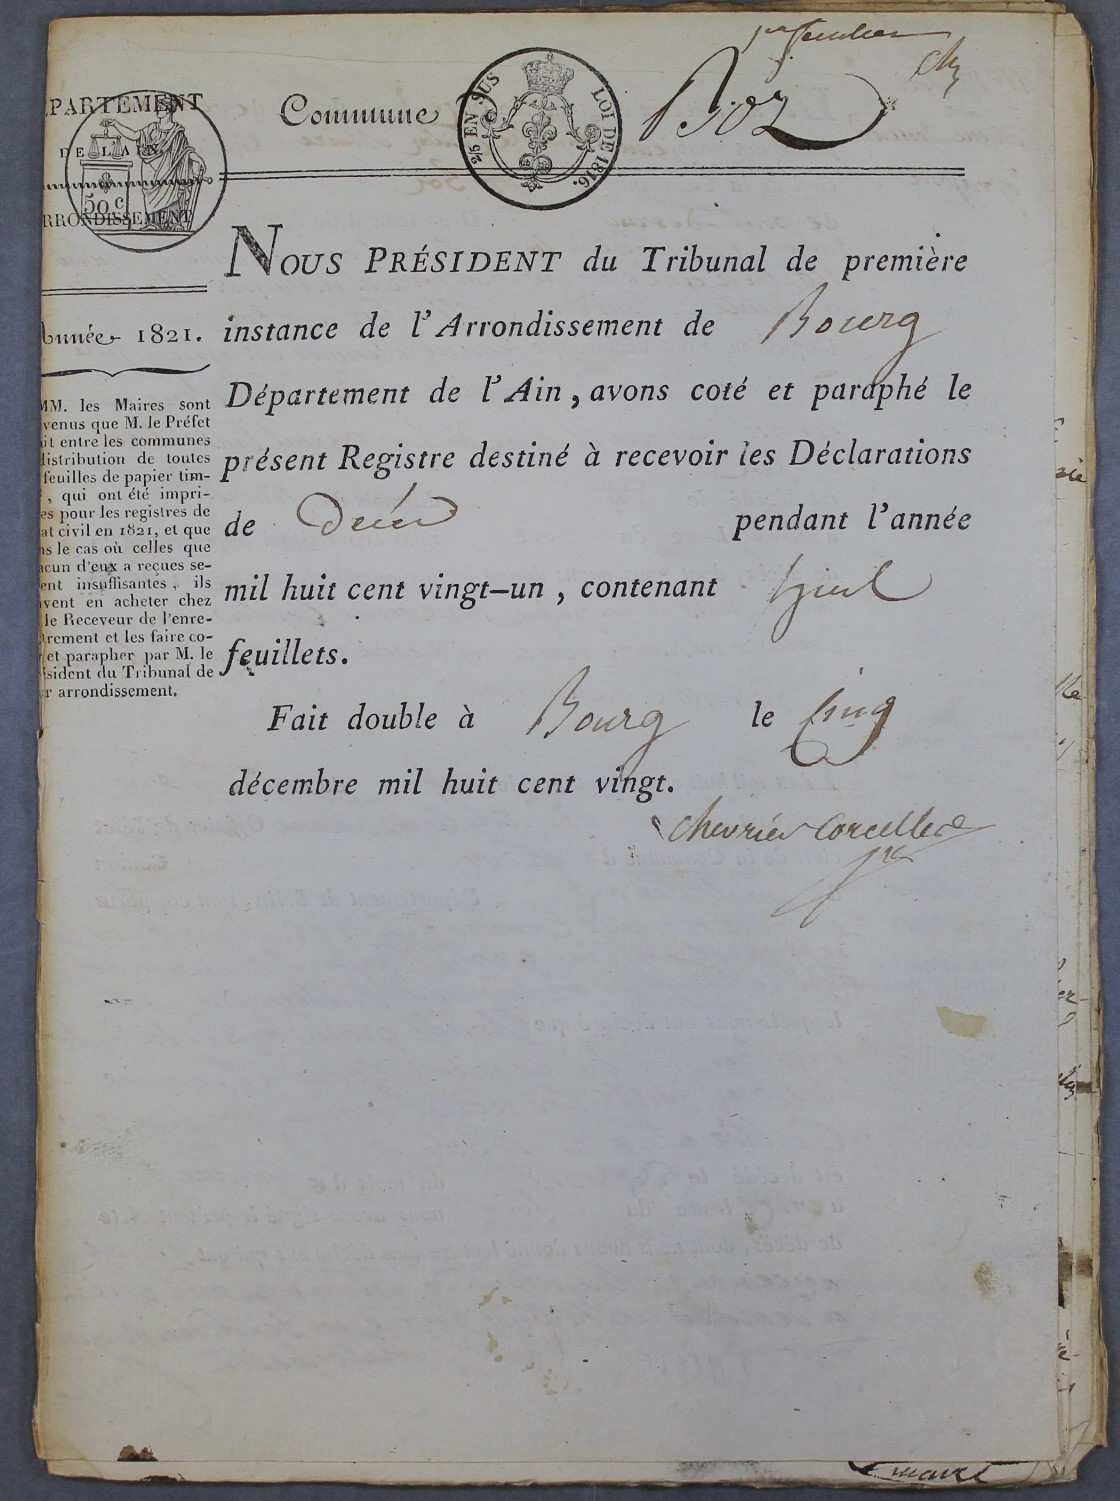 per feuillet
chr
DÉPARTEMENT
DE L'AIN
50 c
ARRONDISSEMENT
Commune
2/5 EN SUS
LOI DE 1816.
Boz
NOUS PRÉSIDENT du Tribunal de première
instance de l'Arrondissement de Bourg
Département de l'Ain, avons coté et paraphé le
présent Registre destiné à recevoir les Déclarations
de Décès pendant l'année
mil huit cent vingt-un, contenant huit
feuillets.
Fait double à Bourg le Cinq
décembre mil huit cent vingt.
Chevrier Corcelles
Année 1821.
MM. les Maires sont
venus que M. le Préfet
it entre les communes
distribution de toutes
feuilles de papier tim-
, qui ont été impri-
es pour les registres de
at civil en 1821, et que
ns le cas où celles que
acun d'eux a reçues se-
ent insuffisantes, ils
uvent en acheter chez
le Receveur de l'enre-
trement et les faire co-
et parapher par M. le
ésident du Tribunal de
r arrondissement.